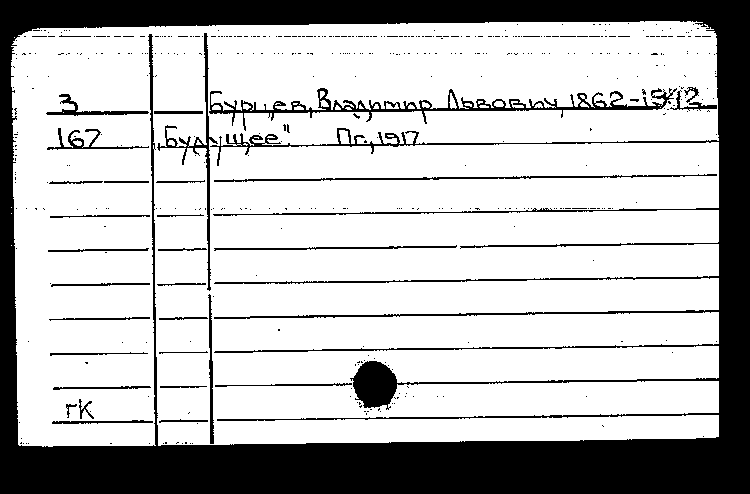 З Бурцев, Владимир Львович, 1862-1942
167 „Будущее". Пг., 1917
гК